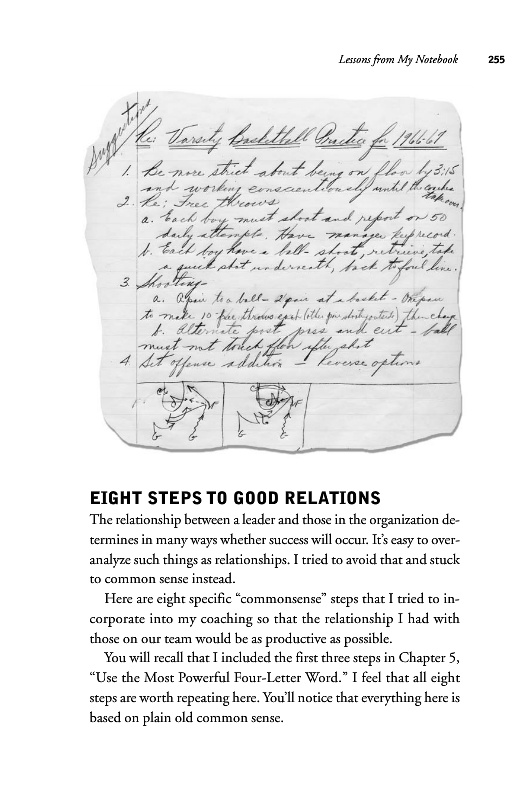 Lessons from My Notebook 255
Suggestions
Re: Varsity Basketball Practice for 1966-67
1. Be more strict about being on floor by 3:15
and working conscientiously until the coaches
take over.
2. Re: Free Throws
a. Each boy must shoot and report on 50
daily attempts. Have manager keep record.
b. Each boy have a ball - shoot, retrieve, take
a quick shot underneath, back to foul line.
3. Shooting-
a. A pair to a ball - 2 pair at a basket - One pair
to make 10 free throws each (other pair shooting outside) then change
b. Alternate post pass and cut - ball
must not touch floor after shot
4. Set offense addition - Reverse options
EIGHT STEPS TO GOOD RELATIONS
The relationship between a leader and those in the organization de-
termines in many ways whether success will occur. It's easy to over-
analyze such things as relationships. I tried to avoid that and stuck
to common sense instead.
Here are eight specific “commonsense” steps that I tried to in-
corporate into my coaching so that the relationship I had with
those on our team would be as productive as possible.
You will recall that I included the first three steps in Chapter 5,
“Use the Most Powerful Four-Letter Word.” I feel that all eight
steps are worth repeating here. You'll notice that everything here is
based on plain old common sense.